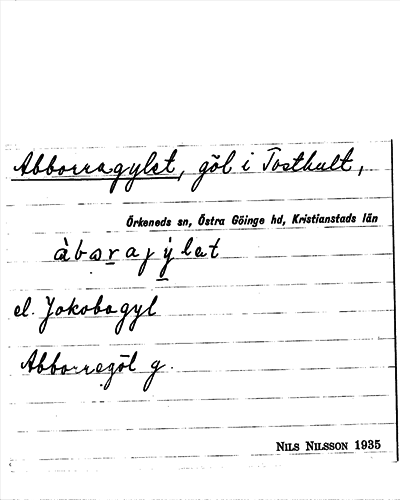 Abborragylet, göl i Tosthult,
Örkeneds sn, Östra Göinge hd, Kristianstads län
àbɷrajýlet
el. Jakobagyl
Abborregöl g.
NILS NILSSON 1935